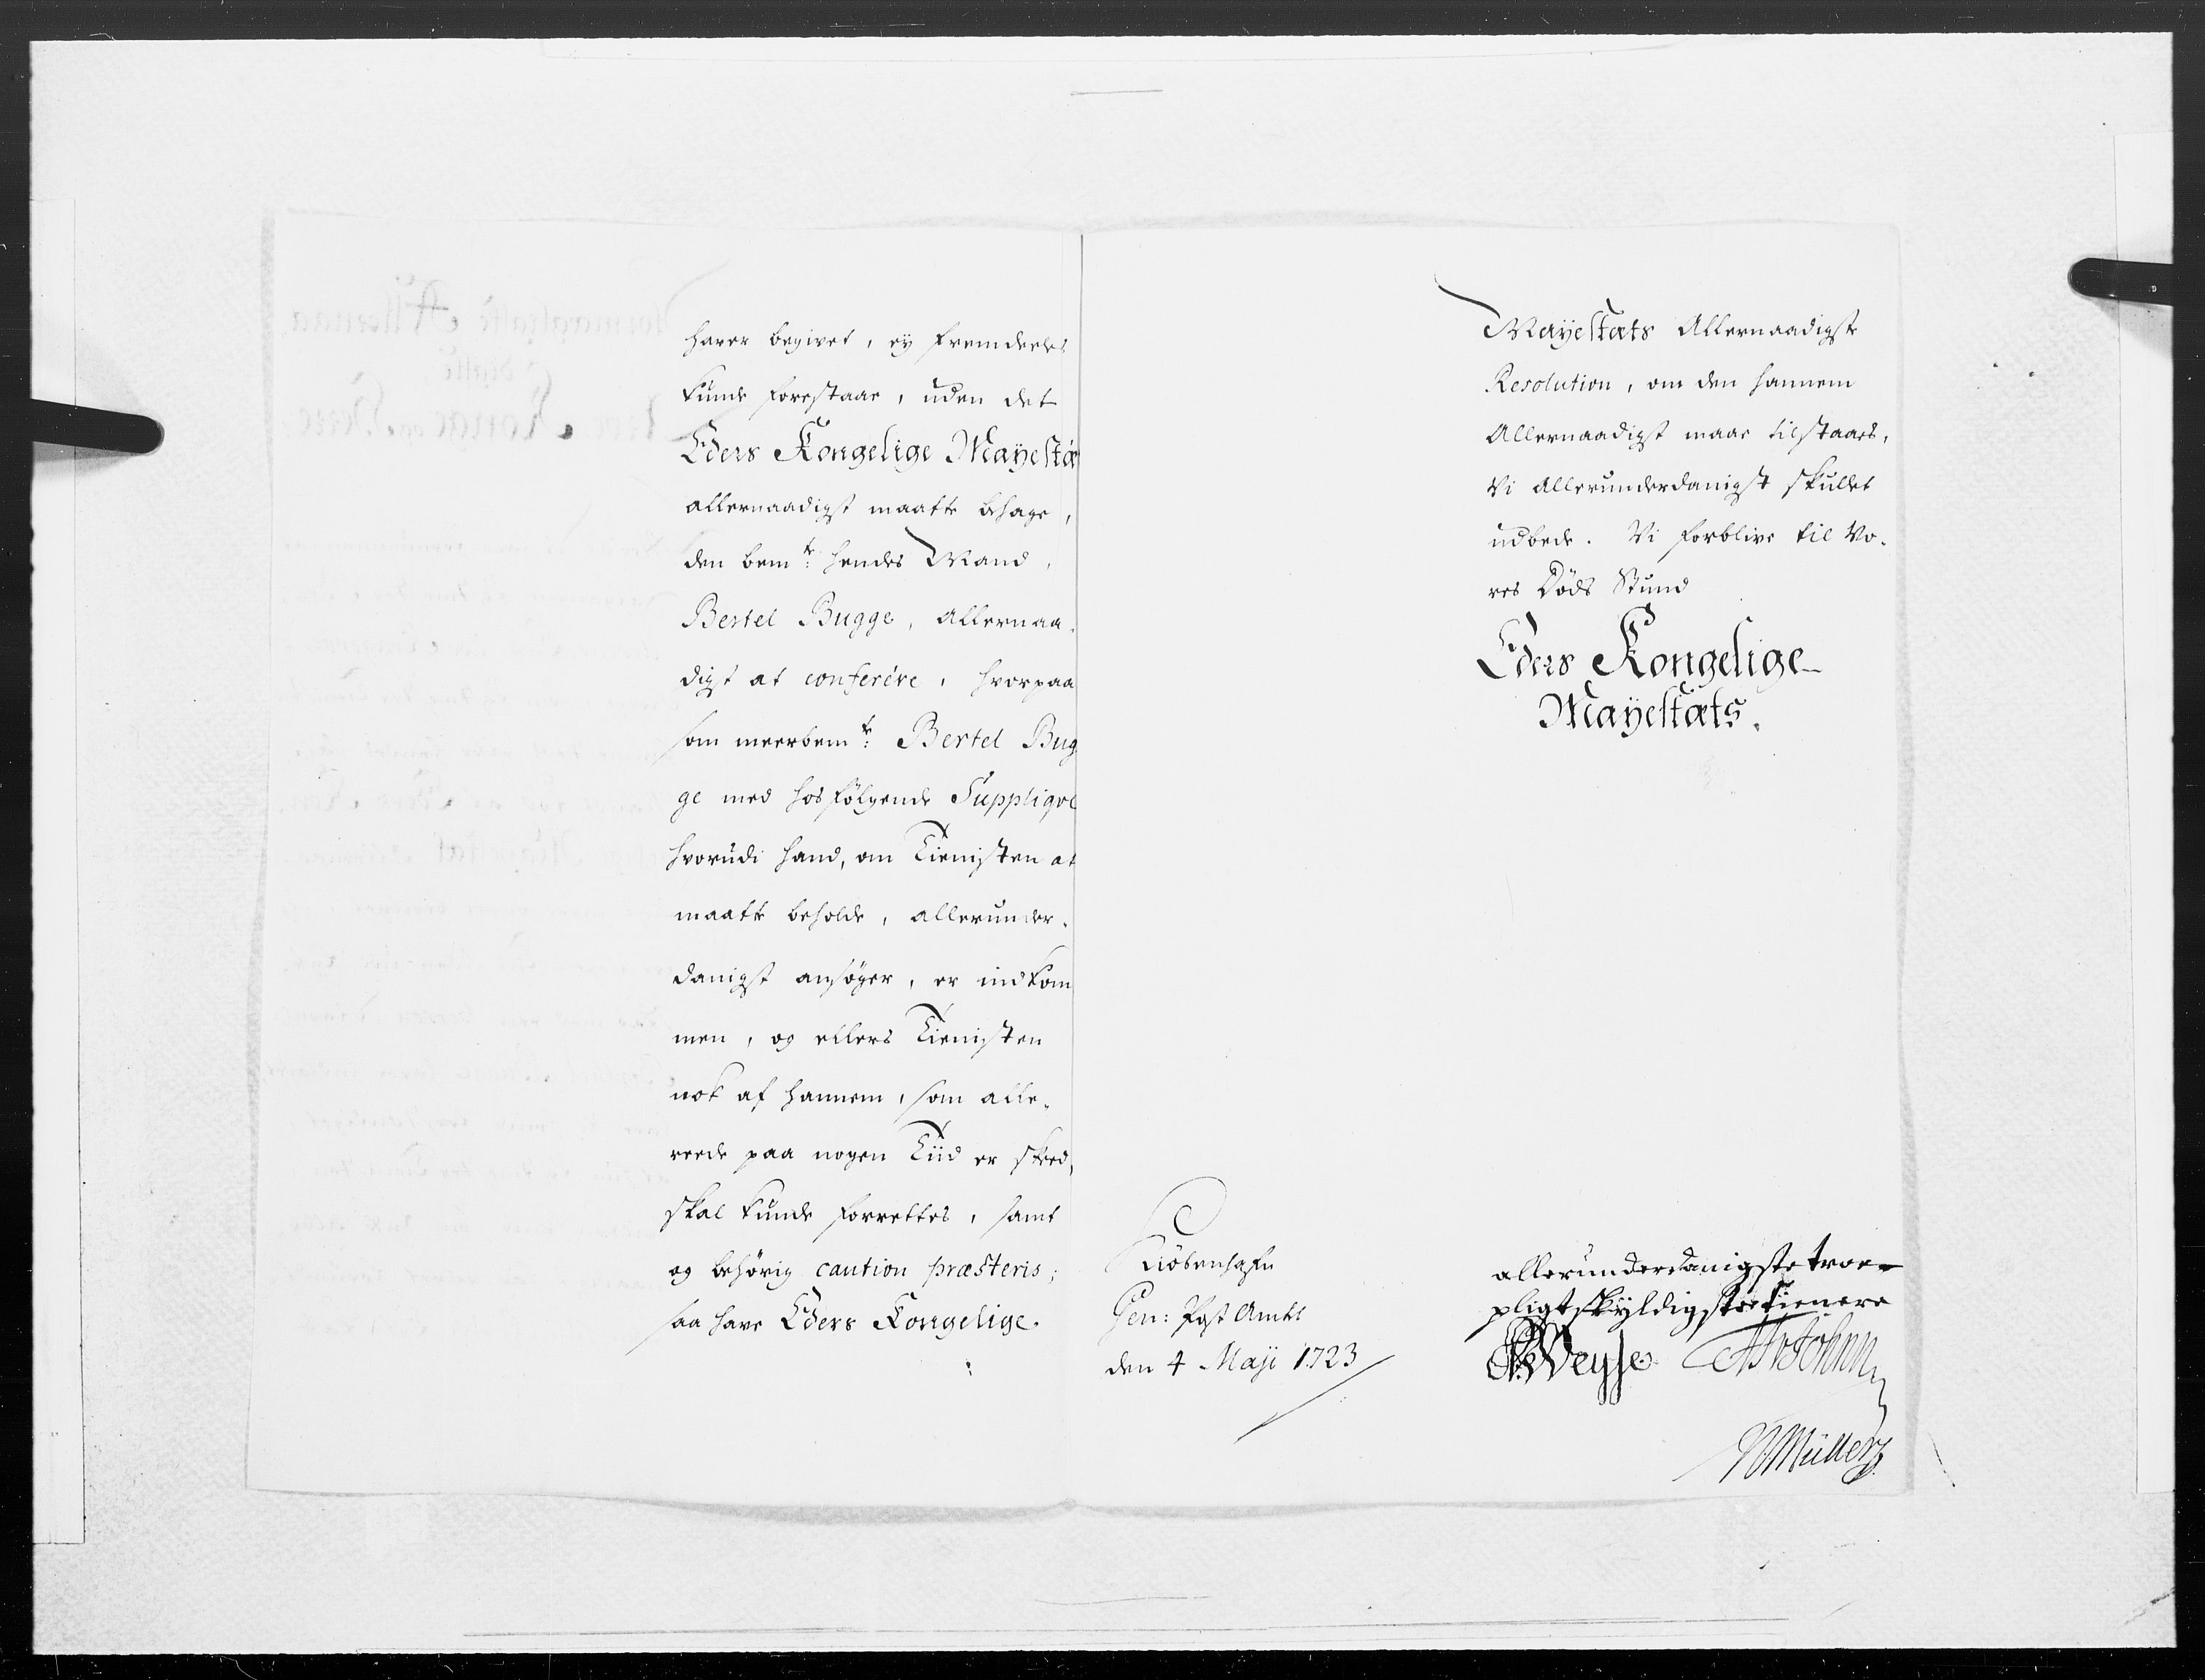 haver begivet, ey fremdeeles
kunde forestaae, uden det
Eders Kongelige Mayestæt
allernaadigst maatte behage,
den bemte: hendes Mand,
Bertel Bugge, allernaa-
digst at conferére, hvorpaa
som meerbemte: Bertel Bug
ge med hosfølgende Suppliqve
hvorudi hand, om Tienisten at
maatte beholde, allerunder-
danigst ansøger, er indkom
men, og ellers Tienisten
nok af hannem, som alle-
reede paa nogen Tiid er skeed,
skal kunde forrettes, samt
og behørig caution præsteris;
saa have Eders Kongelige.
Mayestæts Allernaadigste
Resolution, om den hannem
Allernaadigst maae tilstaaes,
Vi allerunderdanigst skullet
udbede. Vi forblive til Vo-
res Døds Stund
Eders Kongelige
Mayestæts.
Kiöbenhafn
Gen: Post Amtet
den 4 Maji 1723
allerunderdanigste troe-
pligtskyldigste tienere
Weyse
Müller